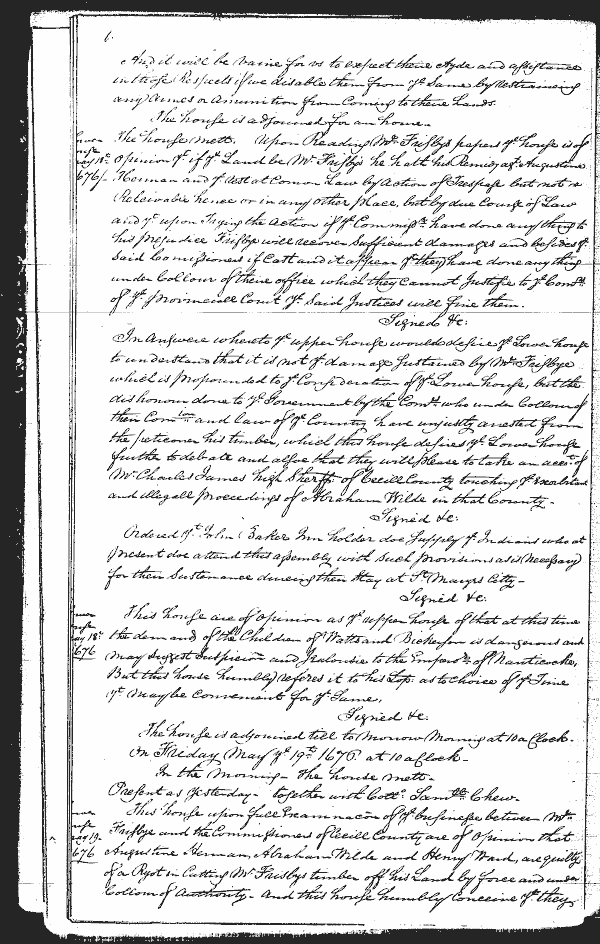 6.
And it will be vaine for vs to expect there Ayde and assistance
in those Respects if we disable them from ye Same by restraineing
any Armes or Amunition from Coming to there hands.
The house is adjourned for an houre.
The house mett. Upon Reading Mr Frisbys papers ye house is of
Opinion yt if ye Land be Mr Frisbys he hath his Remidy agt Augustine
Herman and ye rest at Comon Law by Action of Trespass but not
Releivable here or in any other place, but by due Course of Law
and yt upon Trying the Action if ye Commissrs have done any thing to
his prejudice Frisbye will recover Sufficient damages and besides ye
Said Comissioners if Cast and it appear yt they have done any thing
under Collour of there office which they cannot Justifie to ye
of ye Provinciall Court ye Said Justices will fine them.
Signed &c:
In Answere whereto ye upper house would desire ye Lower house
to understand that it is not ye damage Sustained by Mr Frisbye
which is propounded to ye Consideration of ye Lower house, but the
dishonour done to ye Government by the Comrs who under Collour of
their Comion and law of ye Country have unjustly arested from
the peticoner his timber, which this house desires ye Lower house
further to debate and alsoe that they will please to take an accot of
Mr Charles James high Sherriff of Cecill County touching ye
and illegall proceedings of Abraham Wilde in that County-
Signed &c:
Ordered yt John Baker Inn holder doe Supply ye Indians who at
present doe attend this assembly with Such provisions as is Necessary
for their Sustenance dureing their Stay at St Maryes Citty-
Signed &c:
Lower
house
May 18th
1676/.
This house are of Opinion as ye upper house of that at this time
the demand of the Children of Watts and is dangerous and
may Suggest Suspicion and Jealousie to the Emperor of Nanticoke,
But this house humbly refers it to his Lop. as to choice of ye Time
yt may be Convenient for ye Same.
Signed &c.
Lower
house
May 18th
1676
The house is adjourned till to Morrow Morning at 10 a Clock-
On Friday May ye 19th 1676. at 10 a Clock-
In the Morning- the house mett-
Present as yesterday- together with Coll. Samll Chew.
This house upon full Examinacon of ye business between Mr
Frisbye and the Commissioners of Cecill County are of Opinion that
Augustine Herman, Abraham Wilde and Henry Ward, are guilty
of a Ryot in Cutting Mr Frisbys timber off his Land by force and under
Collour of Authority- And this house humbly Conceive yt they
Lower
house
May 19
1676